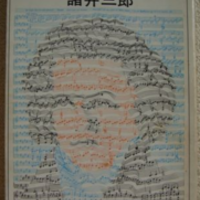 諸井三郎